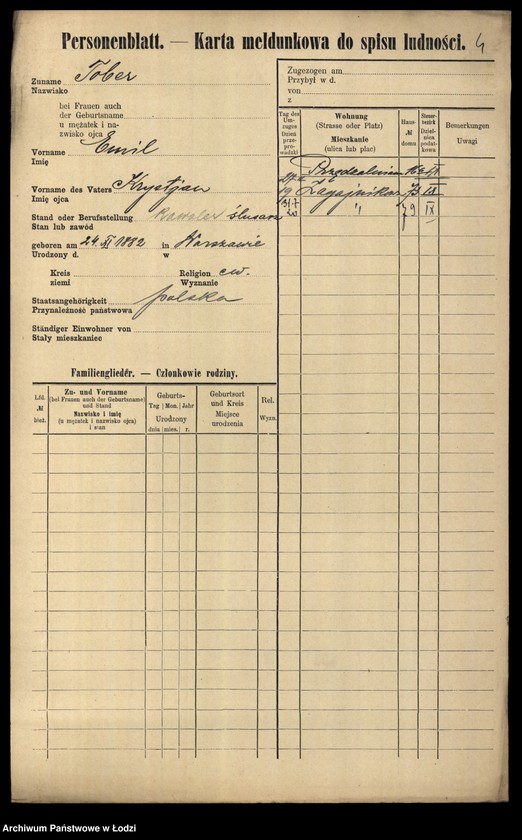 Personenblatt. — Karta meldunkowa do spisu ludności.
4
Zuname Tober
Nazwisko
bei Frauen auch
der Geburtsname
u mężatek i na-
zwisko ojca
Vorname Emil
Imię
Vorname des Vaters Krystjan
Imię ojca
Stand oder Berufsstellung Kawaler ślusarz
Stan lub zawód
geboren am 24. XI 1882 in Warszawie
Urodzony d. w
Kreis Religion ew.
ziemi Wyznanie
Staatsangehörigkeit polska
Przynależność państwowa
Ständiger Einwohner von
Stały mieszkaniec
Zugezogen am
Przybył w d.
von
z
Tag des Umzuges Dzień przeprowadzki
Wohnung
(Strasse oder Platz)
Mieszkanie
(ulica lub plac)
Haus- № domu
Steuerbezirk Dzielnica podatkowa
Bemerkungen
Uwagi
Zagajnikowa 73 IX
31.7 20 " 79 IX
Familienglieder. — Członkowie rodziny.
Lfd. № bież.
Zu- und Vorname
(bei Frauen auch der Geburtsname)
und Stand
Nazwisko i imię
(u mężatek i nazwisko ojca)
i stan
Geburts-
Tag Mon. Jahr
Urodzony
dnia mies. r.
Geburtsort
und Kreis
Miejsce
urodzenia
Rel.
Wyzn.
Archiwum Państwowe w Łodzi